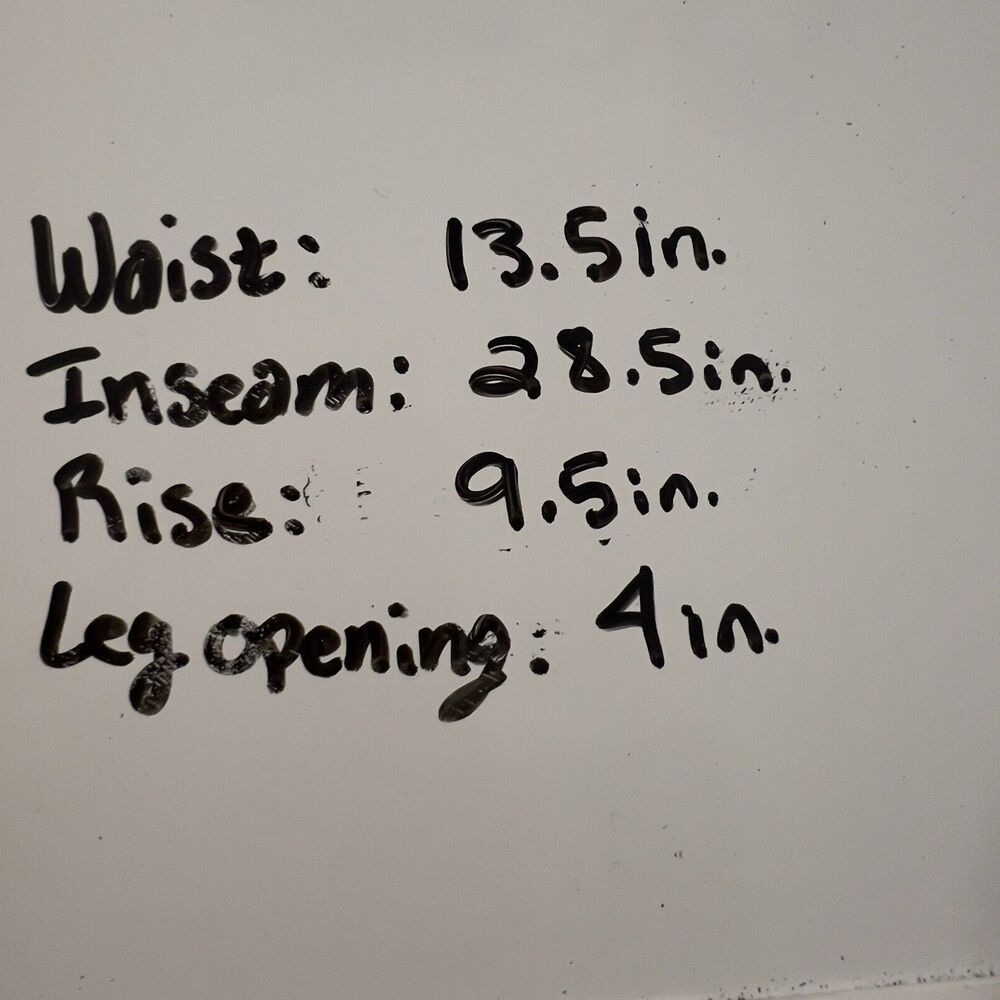 Waist: 13.5in.
Inseam: 28.5in.
Rise: 9.5in.
Leg opening: 4in.